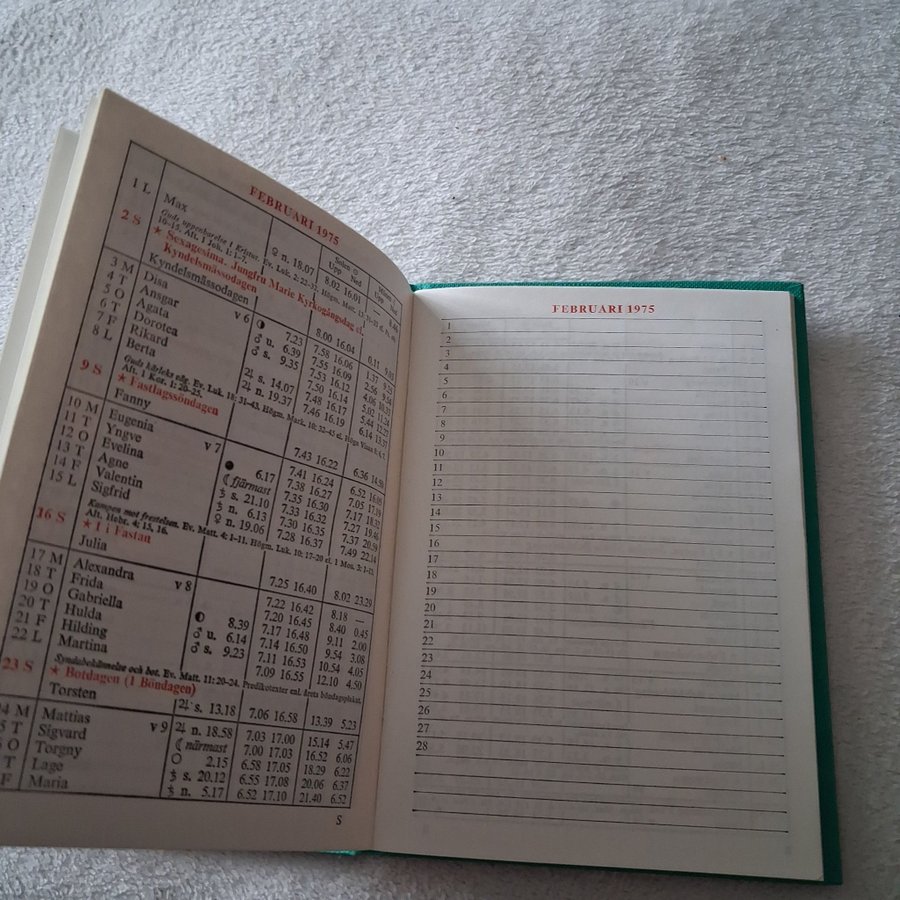 FEBRUARI 1975
Solen ☉
Upp Ned
Upp Ned
1 L Max ♀ n. 18.07 8.02 16.01
Guds uppenbarelse i Kristus. Ev. Luk. 2: 22-37. Högm. Matt.
10-15. Aft. 1 Joh. 1: 1-7.
2 S ★ Sexagesima. Jungfru Marie Kyrkogångsdag el.
Kyndelsmässodagen
Kyndelsmässodagen 8.00 16.04 0.11
3 M Disa v 6 ◑ 7.23 7.58 16.06 1.37
4 T Ansgar ♂ u. 6.39 7.55 16.09 2.56
5 O Agata ♂ s. 9.35 7.53 16.12 4.06
6 T Dorotea 7.50 16.14 5.02 11.24
7 F Rikard ♃ s. 14.07 7.48 16.17 5.44 12.27
8 L Berta ♃ n. 19.37 7.46 16.19 6.14 13.37
Guds kärleks väg. Ev. Luk. 18: 31-43. Högm. Mark. 10: 32-45 el. Höga Visan 8: 6, 7.
Aft. 1 Kor. 1: 20-25.
9 S ★ Fastlagssöndagen
Fanny 7.43 16.22 6.36 14.50
10 M Eugenia v 7 7.41 16.24 6.52
11 T Yngve ● 6.17 7.38 16.27 7.05
12 O Evelina ☾ fjärmast 7.35 16.30 7.17 18.32
13 T Agne ♄ s. 21.10 7.33 16.32 7.27 19.46
14 F Valentin ♄ n. 6.13 7.30 16.35 7.37 20.59
15 L Sigfrid ♀ n. 19.06 7.28 16.37 7.49 22.14
Kampen mot frestelsen. Ev. Matt. 4: 1-11. Högm. Luk. 10: 17-20 el. 1 Mos. 3: 1-13.
Aft. Hebr. 4: 15, 16.
16 S ★ 1 i Fastan
Julia 7.25 16.40 8.02 23.29
17 M Alexandra v 8 7.22 16.42 8.18 —
18 T Frida 7.20 16.45 8.40 0.45
19 O Gabriella ◐ 8.39 7.17 16.48 9.11 2.00
20 T Hulda ♂ u. 6.14 7.14 16.50 9.54 3.08
21 F Hilding ♂ s. 9.23 7.11 16.53 10.54 4.05
22 L Martina 7.09 16.55 12.10 4.50
Syndabekännelse och bot. Ev. Matt. 11: 20-24. Predikotexter enl. årets böndagsplakat.
23 S ★ Botdagen (1 Böndagen)
Torsten ♃ s. 13.18 7.06 16.58 13.39 5.23
4 M Mattias v 9 ♃ n. 18.58 7.03 17.00 15.14 5.47
5 T Sigvard ☾ närmast 7.00 17.03 16.52 6.06
O Torgny ○ 2.15 6.58 17.05 18.29 6.22
T Lage ♄ s. 20.12 6.55 17.08 20.06 6.37
F Maria ♄ n. 5.17 6.52 17.10 21.40 6.52
S
FEBRUARI 1975
1
2
3
4
5
6
7
8
9
10
11
12
13
14
15
16
17
18
19
20
21
22
23
24
25
26
27
28